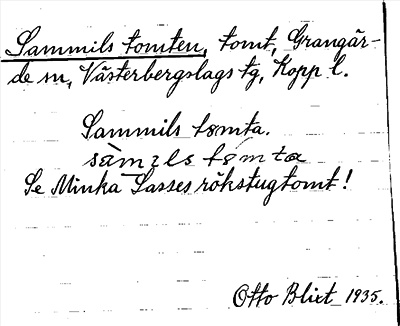 Sammils tomten, tomt, Grangär-
de sn, Västerbergslags tg, Kopp l.
Sammils tomta.
Se Minka Lasses rökstugtomt!
Otto Blixt 1935.